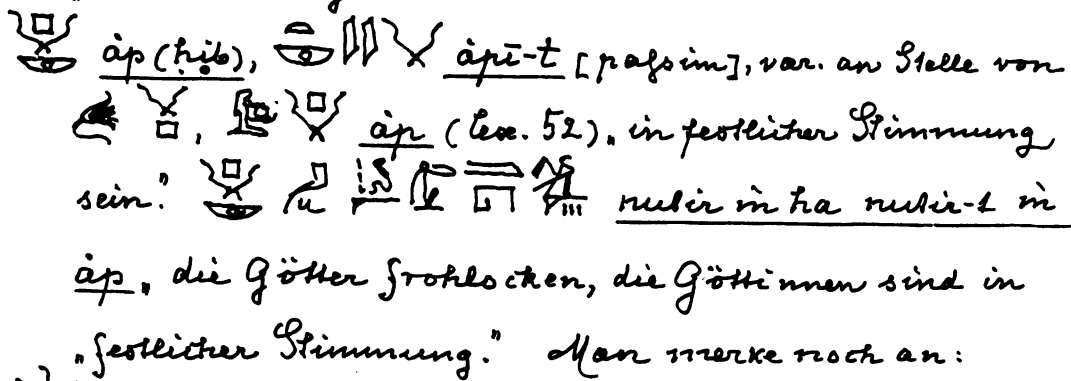 áp (ḥib), ápī-t [passim], var. an Stelle von
áp (lex. 52) „in festlicher Stimmung
sein.“ nutir m ha nutir-t m
áp „die Götter frohlocken, die Göttinnen sind in
„festlicher Stimmung.“ Man merke noch an: